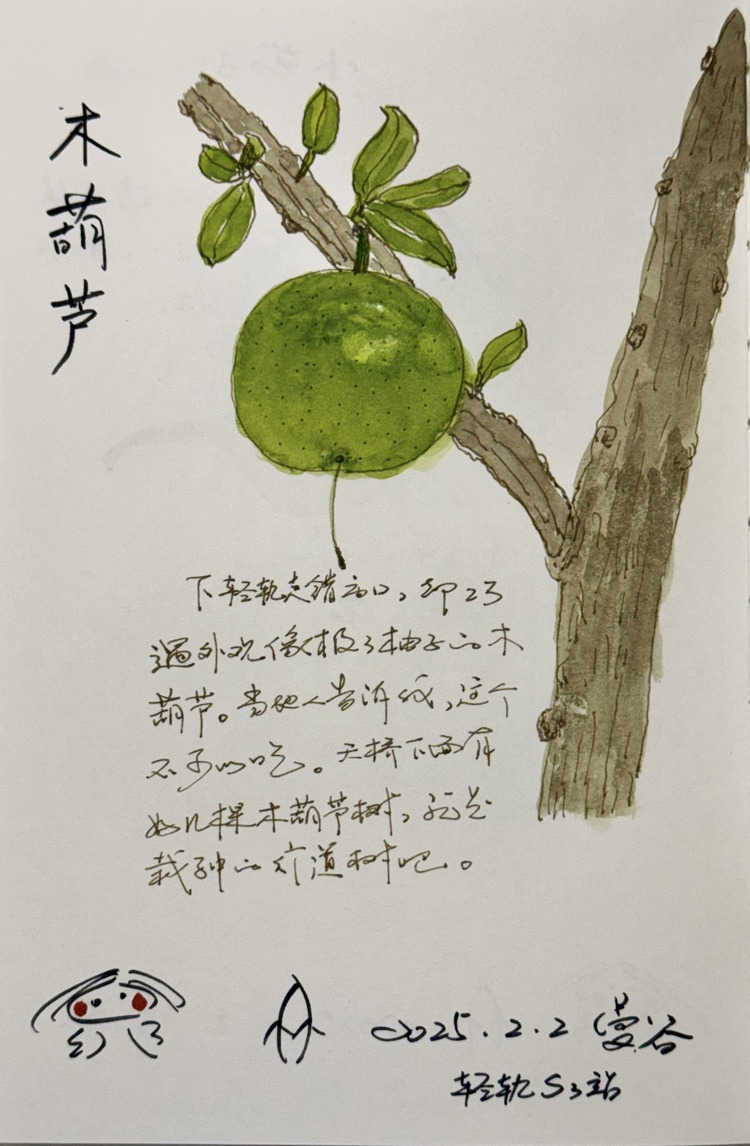 木葫芦
下轻轨走错出口，却巧
遇外观像极了柚子的木
葫芦。当地人告诉我，这个
不可以吃。天桥下面有
好几棵木葫芦树，就是
栽种的行道树吧。
2025.2.2 曼谷
轻轨S3站